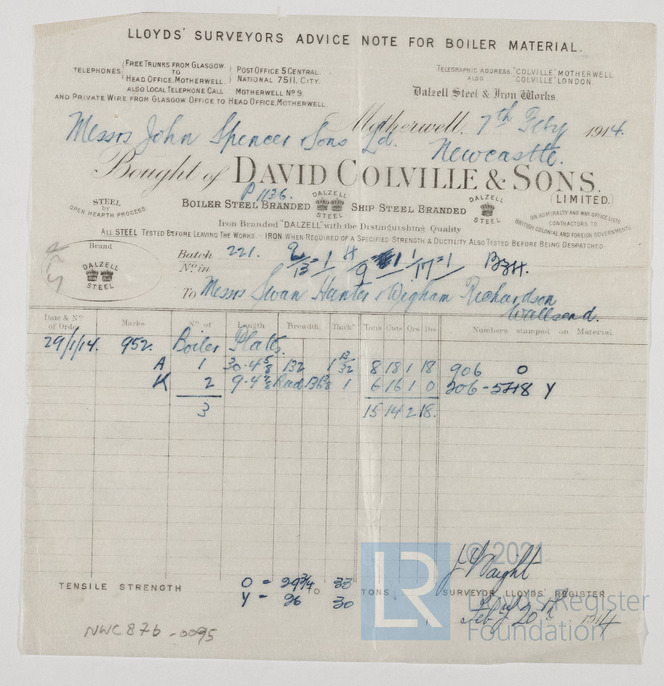 LLOYDS' SURVEYORS ADVICE NOTE FOR BOILER MATERIAL.
TELEPHONES FREE TRUNKS FROM GLASGOW TO HEAD OFFICE, MOTHERWELL. POST OFFICE 5 CENTRAL. NATIONAL 7511, CITY.
ALSO LOCAL TELEPHONE CALL MOTHERWELL Nº 9.
AND PRIVATE WIRE FROM GLASGOW OFFICE TO HEAD OFFICE, MOTHERWELL.
TELEGRAPHIC ADDRESS, "COLVILLE", MOTHERWELL.
ALSO "COLVILLE", LONDON.
Dalzell Steel & Iron Works.
Motherwell, 7th Feby 1914.
Messrs John Spencer & Sons Ld. Newcastle.
Bought of DAVID COLVILLE & SONS,
(LIMITED.)
P 1136.
STEEL BY OPEN HEARTH PROCESS.
BOILER STEEL BRANDED DALZELL STEEL SHIP STEEL BRANDED DALZELL STEEL
ON ADMIRALTY AND WAR OFFICE LISTS
CONTRACTORS TO
BRITISH COLONIAL AND FOREIGN GOVERNMENTS
Iron Branded "DALZELL" with the Distinguishing Quality
ALL STEEL TESTED BEFORE LEAVING THE WORKS - IRON WHEN REQUIRED OF A SPECIFIED STRENGTH & DUCTILITY ALSO TESTED BEFORE BEING DESPATCHED
Brand
DALZELL STEEL
Batch Nº in 221.
To Messrs Swan Hunter & Wigham Richardson
Wallsend.
Date & Nº of Order Marks Nº of Length Breadth Thick Tons Cwts Qrs Lbs Numbers stamped on Material
29/1/14. 952. Boiler Platts.
A 1 30-4 5/8 132 1 13/32 8 18 1 18 906 O
K 2 9-4 1 6 16 1 0 206-5718 Y
3 15 14 2 18.
TENSILE STRENGTH O = 29 3/4 33 TONS,
Y = 26 30
SURVEYOR LLOYDS REGISTER
Feby 20th 1914
NWC876-0095
© 2021
LR
Lloyd's Register
Foundation